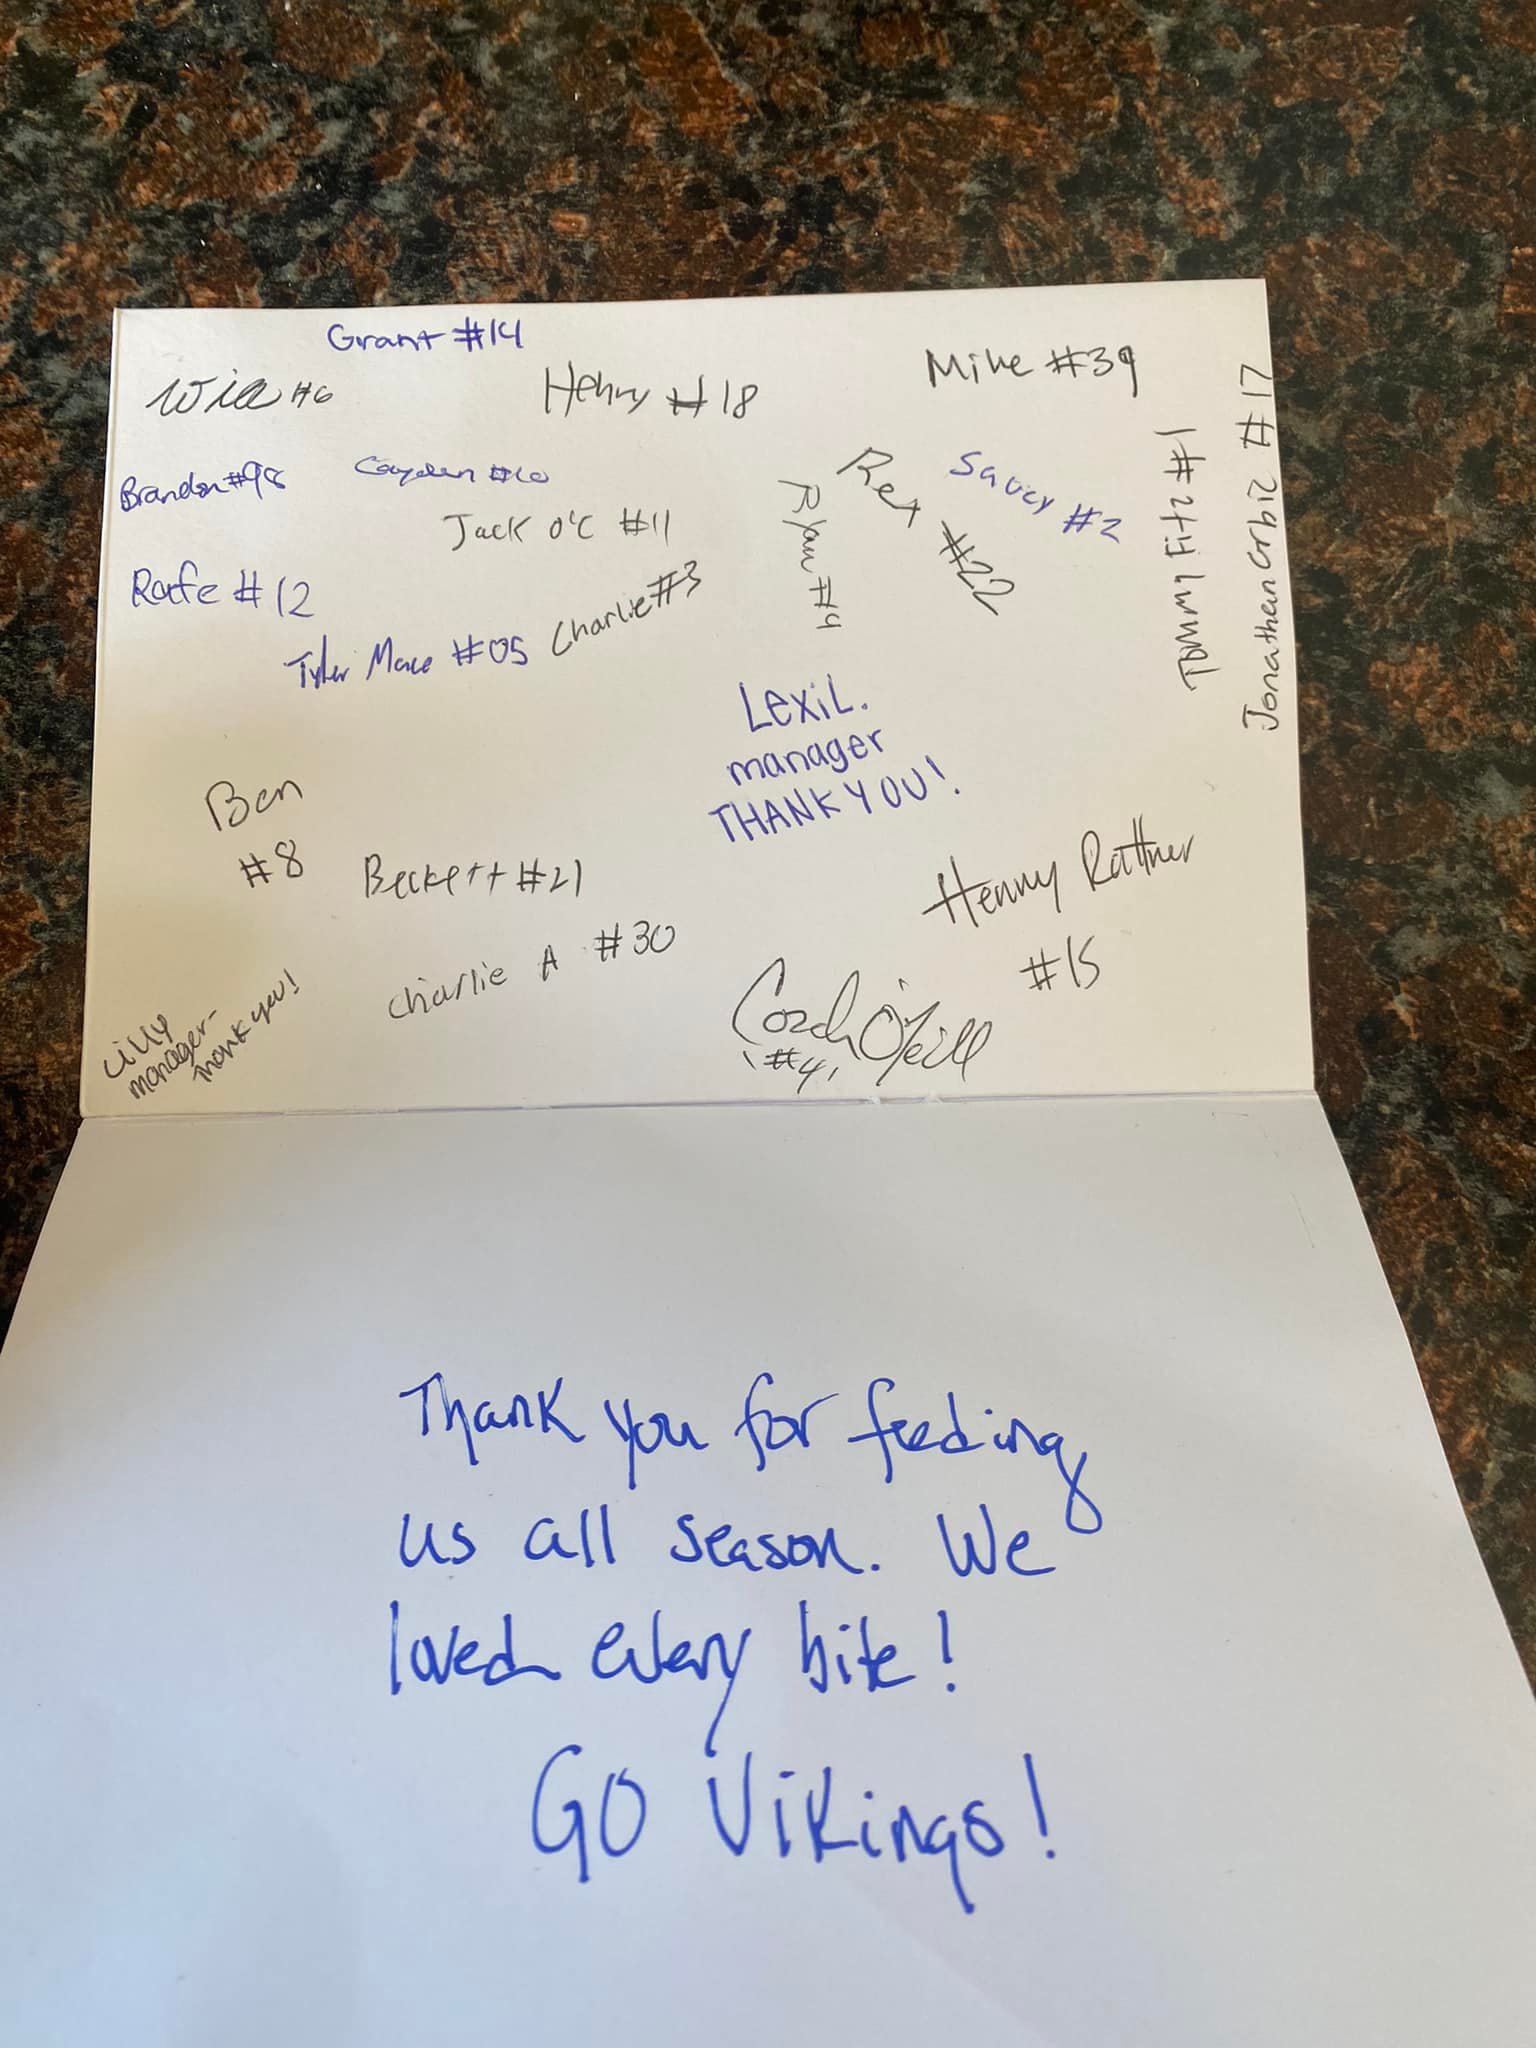 Grant #14
Will #6
Henry #18
Mike #39
Brandon #98
Cayden #10
Jack O'C #11
Ryan #4
Rex #22
Saucy #2
Tommy Fitz #1
Jonathan #17
Rafe #12
Tyler Mace #05
Charlie #3
Lexi L.
manager
THANK YOU!
Ben
#8
Beckett #21
Henry Rattner
#15
Charlie A #30
Lilly
manager-
thank you!
Coach O'Neill
"#4"
Thank you for feeding
us all season. We
loved every bite!
GO Vikings!